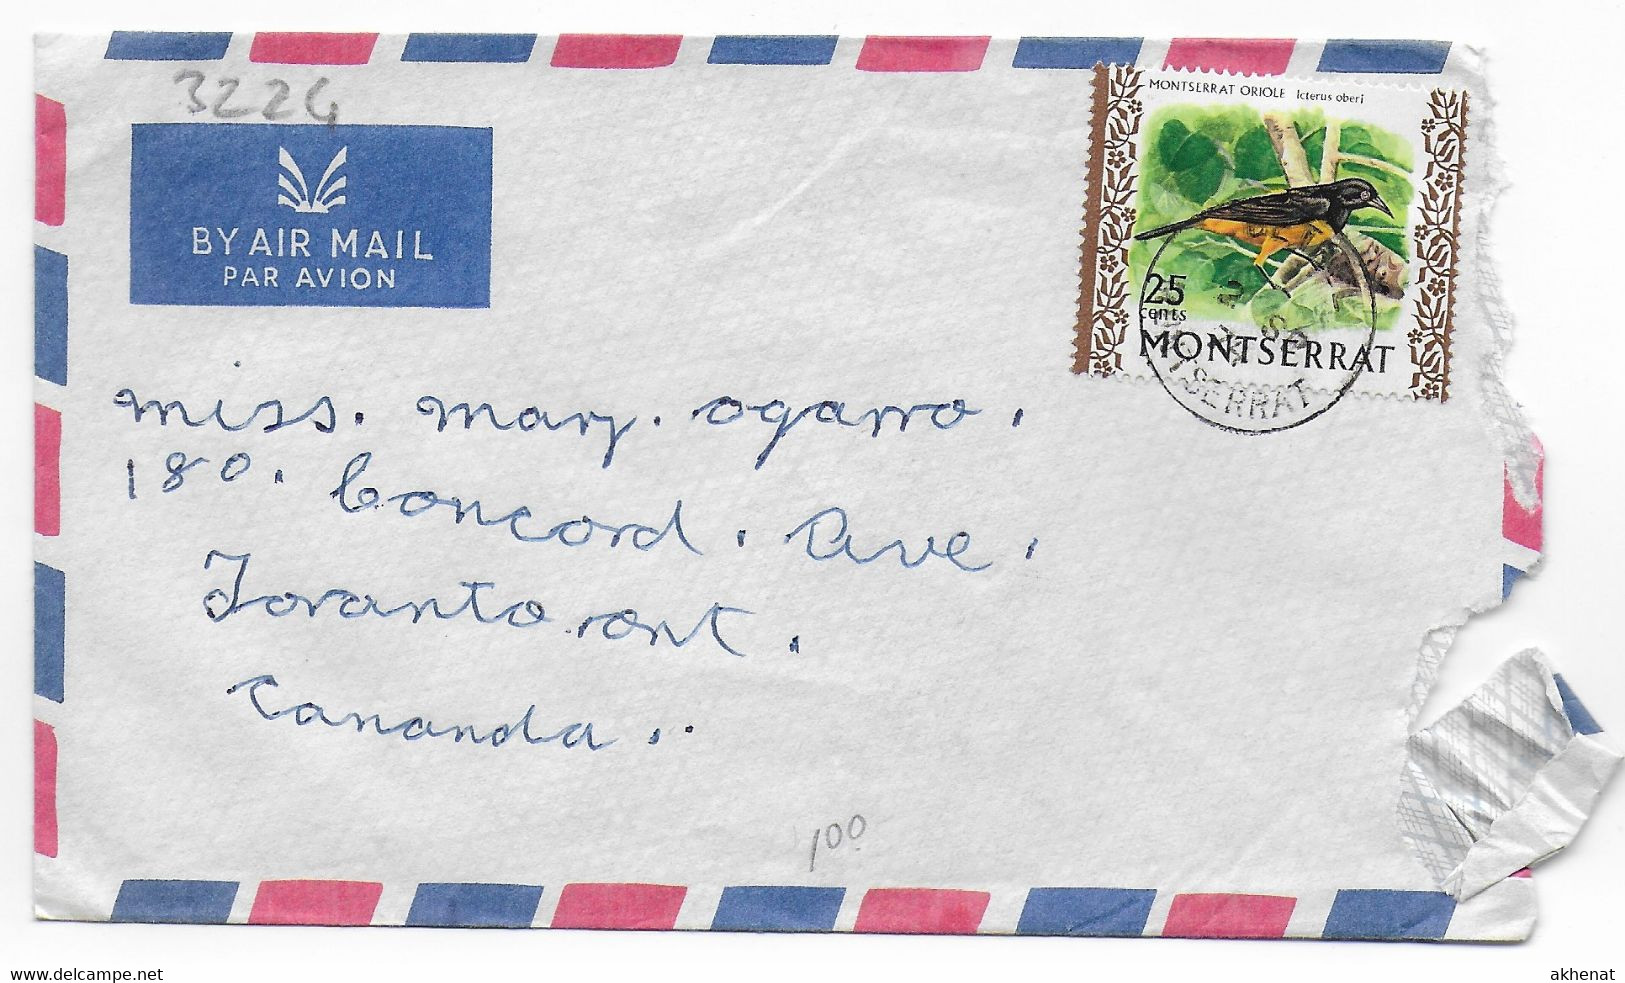 3224
BY AIR MAIL
PAR AVION
MONTSERRAT ORIOLE Icterus oberi
25
cents
MONTSERRAT
miss. mary. ogarro.
180. Concord. Ave.
Toranto. ont.
Cananda..
100
www.delcampe.net
akhenat